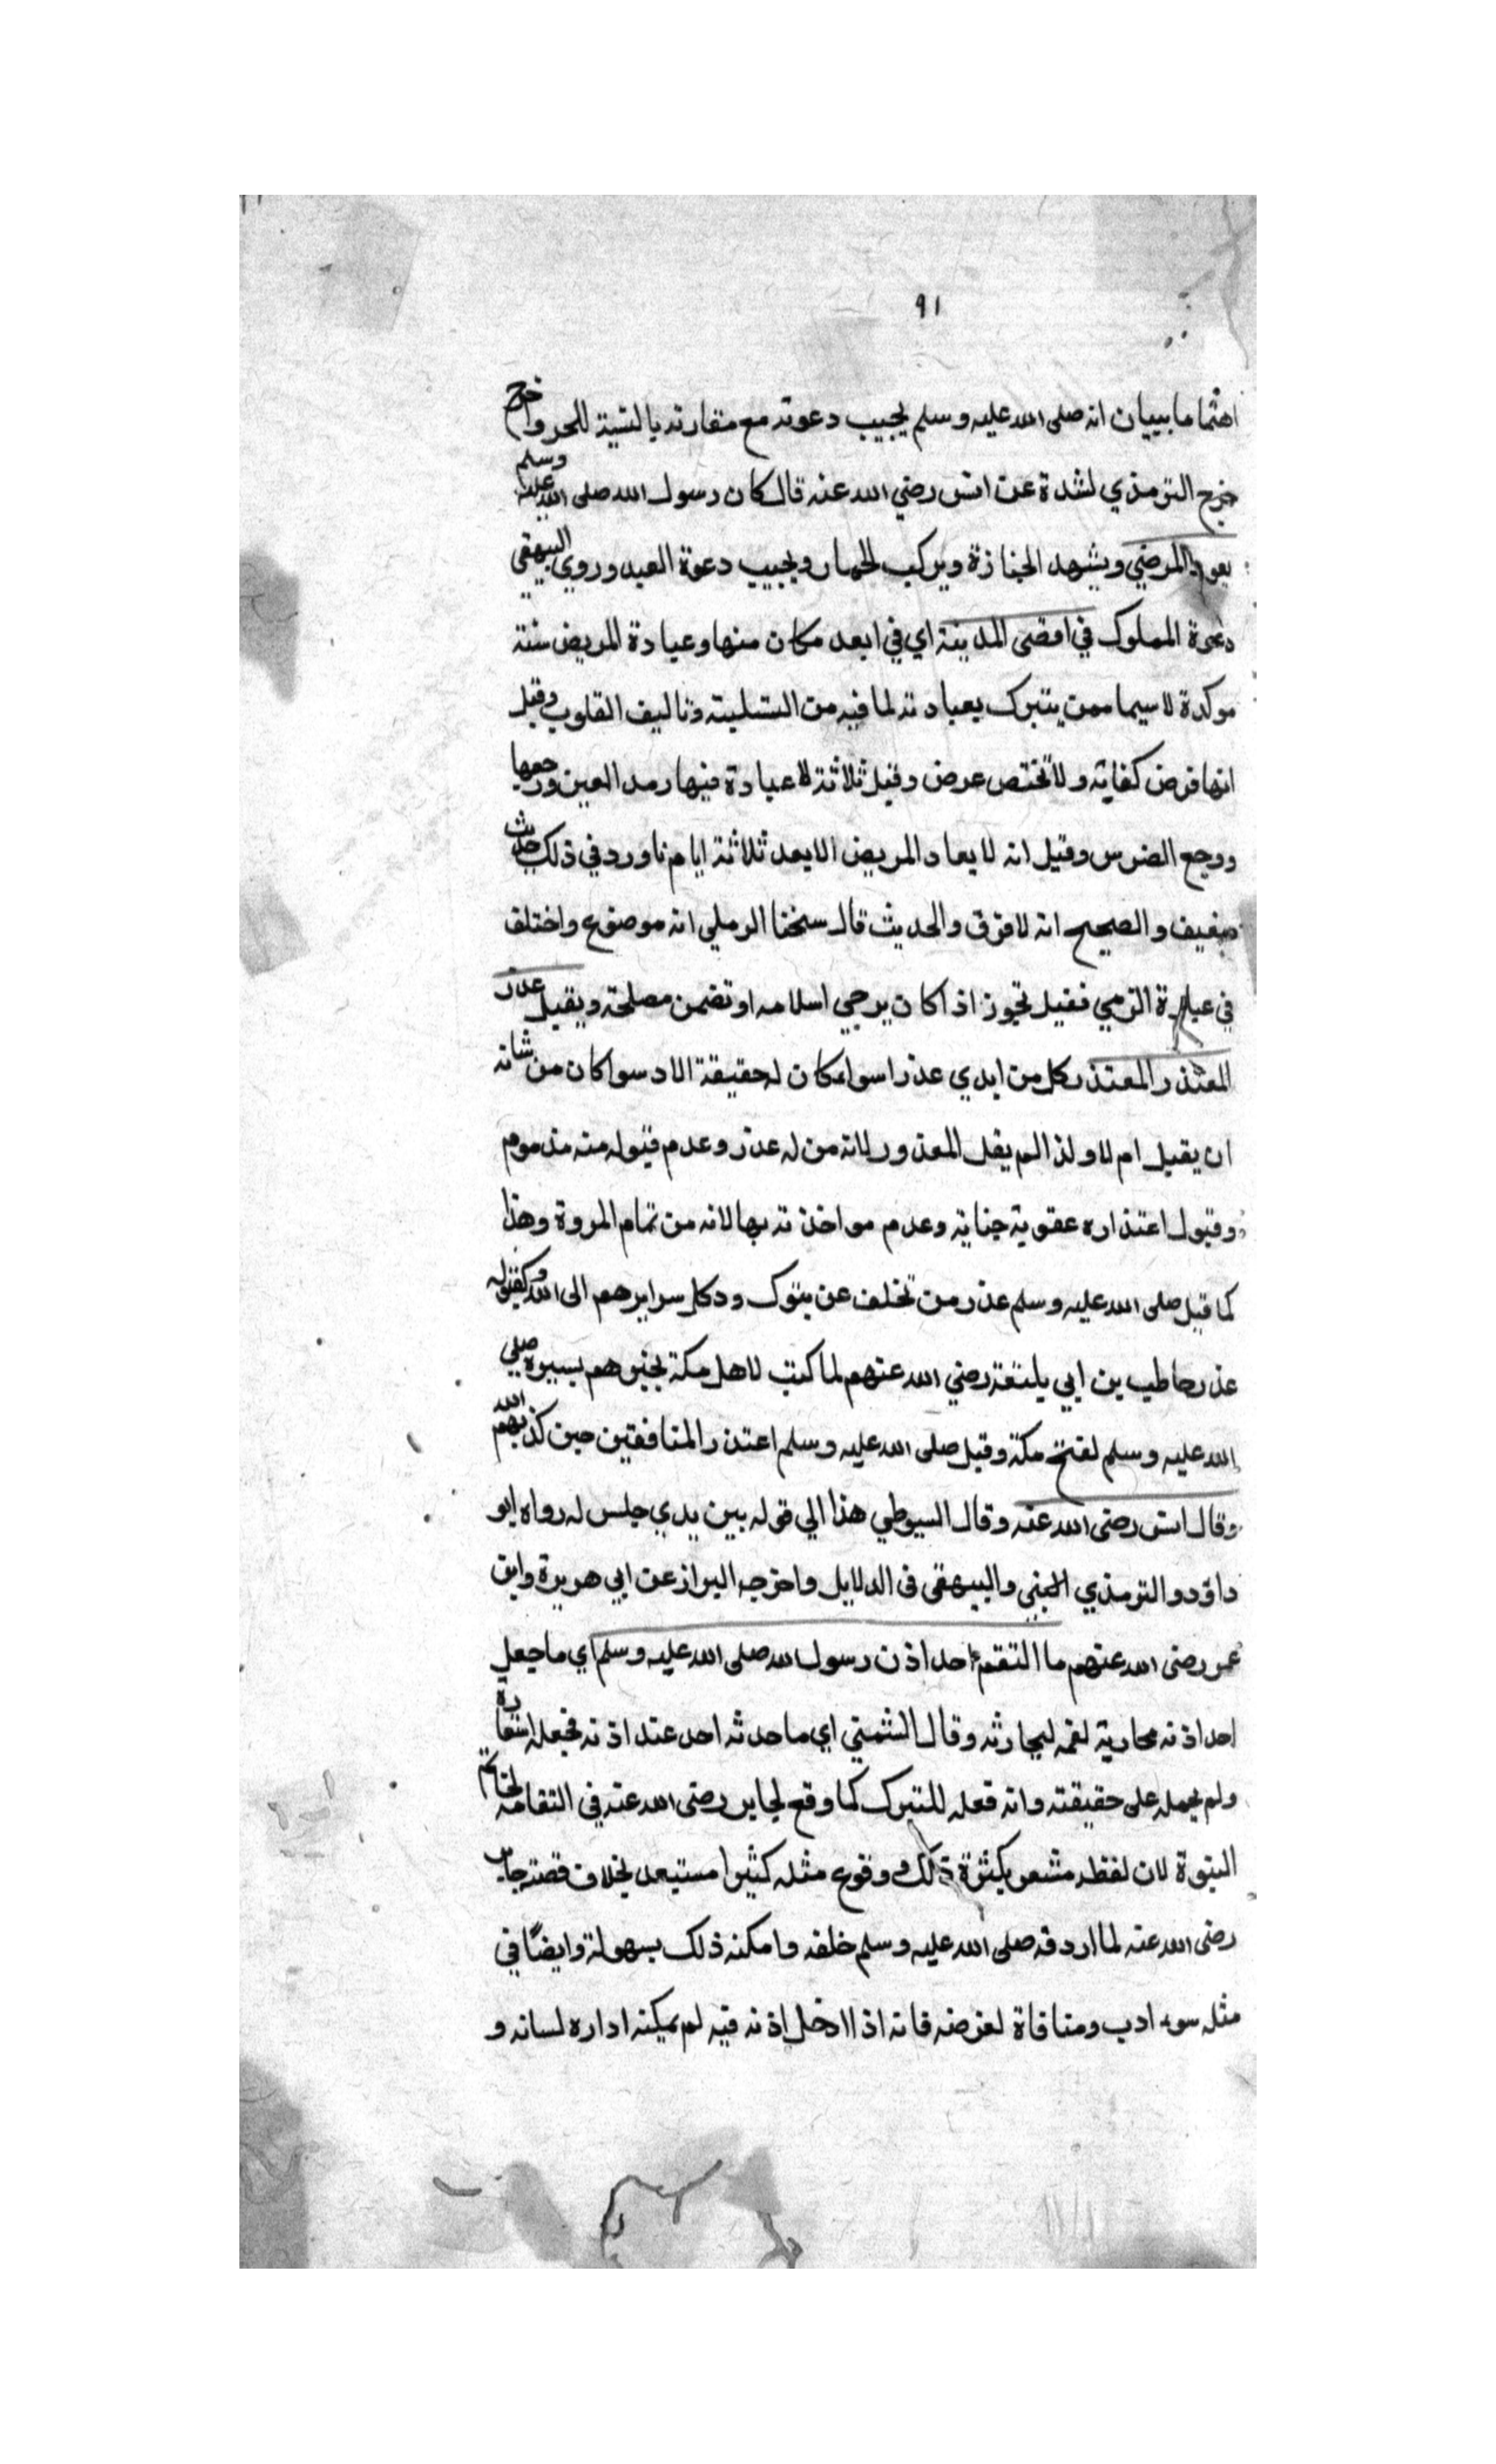 ٩١
اهتماما ببيان انه صلى الله عليه وسلم يجيب دعوته مع مقارنه بالنسبة للحر واخرج
خرج الترمذي لشدة عن انس رضي الله عنه قال كان رسول الله صلى الله عليه وسلم
يعود المرضي ويشهد الجنازة ويركب الحمار ويجيب دعوة العبد وروي البيهقي
دعوة المملوك في اقصى المدينة اي في ابعد مكان منها وعيادة المريض سنة
موكدة لا سيما ممن يتبرك بعيادته لما فيه من التسلية وتاليف القلوب وقيل
انها فرض كفاية ولا تختص عرض وقيل ثلاثة لا عيادة فيها رمد العين ورجعها
ووجع الضرس وقيل انه لا يعاد المريض الا بعد ثلاثة ايام وورد في ذلك حديث
ضعيف والصحيح انه لا فرق والحديث قال سخنا الرملي انه موضوع واختلف
في عيادة الذمي فقيل تجوز اذا كان يرجي اسلامه او تضمن مصلحة ويقبل عذر
المعتذر المعتذر كل من ابدي عذرا سواء كان له حقيقة الاد سوا كان من شانه
ان يقبل ام لا ولذا لم يقل المعذور لانه من له عذر وعدم قبوله منه مذموم
وقبول اعتذاره عقوبة جناية وعدم مواخذته بها لانه من تمام المروة وهذا
كما قبل صلى الله عليه وسلم عذر من تخلف عن بتوك ودكل سرايرهم الى الله وكقبوله
عذر حاطب بن ابي بلتعة رضي الله عنهم لما كتب لاهل مكة بخبرهم بسيره صلي
الله عليه وسلم لفتح مكة وقبل صلى الله عليه وسلم اعتذر المنافقين حين كذبهم الله
وقال انس رضى الله عنه وقال السيوطي هذا الي قوله بين يدي جلس له رواه ابو
داؤد والترمذي والبيهقى فى الدلايل واخرجه البزاز عن ابي هريرة وابن
عمر رضى الله عنهم ما التقم احد اذن رسول الله صلى الله عليه وسلم اي ما جعل
احد اذنه محاذية لفمه ليحادثه وقال الشمني اي ما حدثه احد عند اذنه فجعله استعارة
ولم يحمله على حقيقته وانه فعله للتبرك كما وقع لجابر رضى الله عنه في التقامه لخاتم
النبوة لان لفظه مشعر بكثرة ذلك ووقوع مثله كثيرا مستبعد بخلاف قصة جابر
رضى الله عنه لما اردفه صلى الله عليه وسلم خلفه وامكنه ذلك بسهولة وايضًا في
مثله سوء ادب ومنافاة لغرضه فانه اذا ادخل اذنه فيه لم يمكنه اداره لسانه و